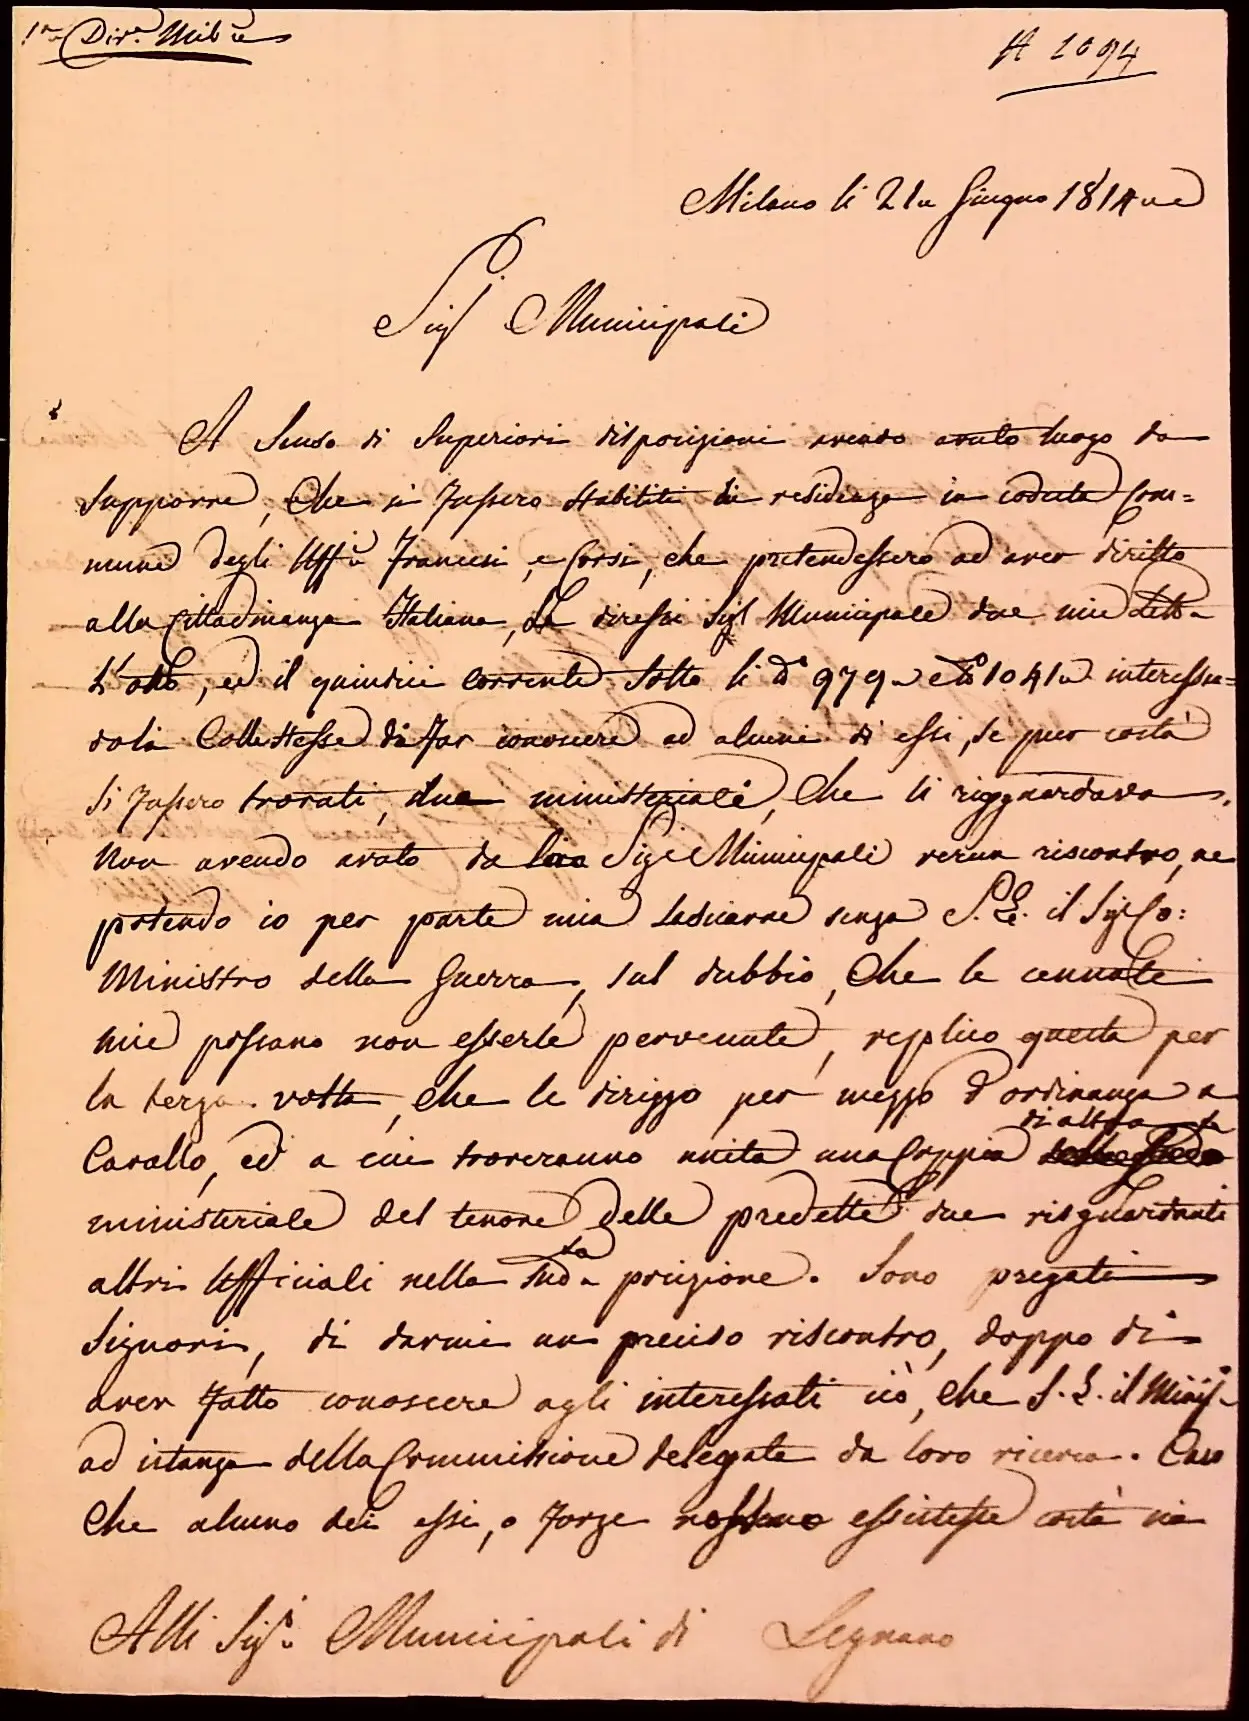 1ma Divne Milre
N 1094
Milano li 21 Giugno 1814
Sigi Municipali
A Senso di Superiori disposizioni avendo avuto luogo da
Supporre, Che si fussero stabiliti di residenza in codesta Com=
mune degli Uffli Francesi, e Corsi, che pretendessero ad aver diritto
alla Cittadinanza Italiana, Le diressi Sigi Municipale due mie Lette
L'otto, ed il quindici corrente Sotto li di 979 e 1041 interessan=
dola Collestesse di far conoscere ad alcuni di essi, se pur costà
Si fussero trovati, due ministeriali, Che li risguardava.
Non avendo avuto da Sigi Municipali verun riscontro, ne
potendo io per parte mia lasciarne senza S.E. il Sigr Co:
Ministro della Guerra, sul dubbio, Che le cennate
mie possano non esserle pervenute, replico questa per
la terza volta, che le dirigo per mezzo d'ordinanza a
Cavallo, ed a cui troveranno unita una Coppia di altra
ministeriale del tenore delle predette due risguardanti
altri Ufficiali nella sudta posizione. Sono pregati
Signori, di darmi un preciso riscontro, doppo di
aver fatto conoscere agli interessati ciò, che S.E. il Minis
ad istanza della Commissione delegata da loro ricerca. Caso
Che alcuno dei essi, o forze nessuno essistesse costà mi
Alli Sigri Municipali di Legnano